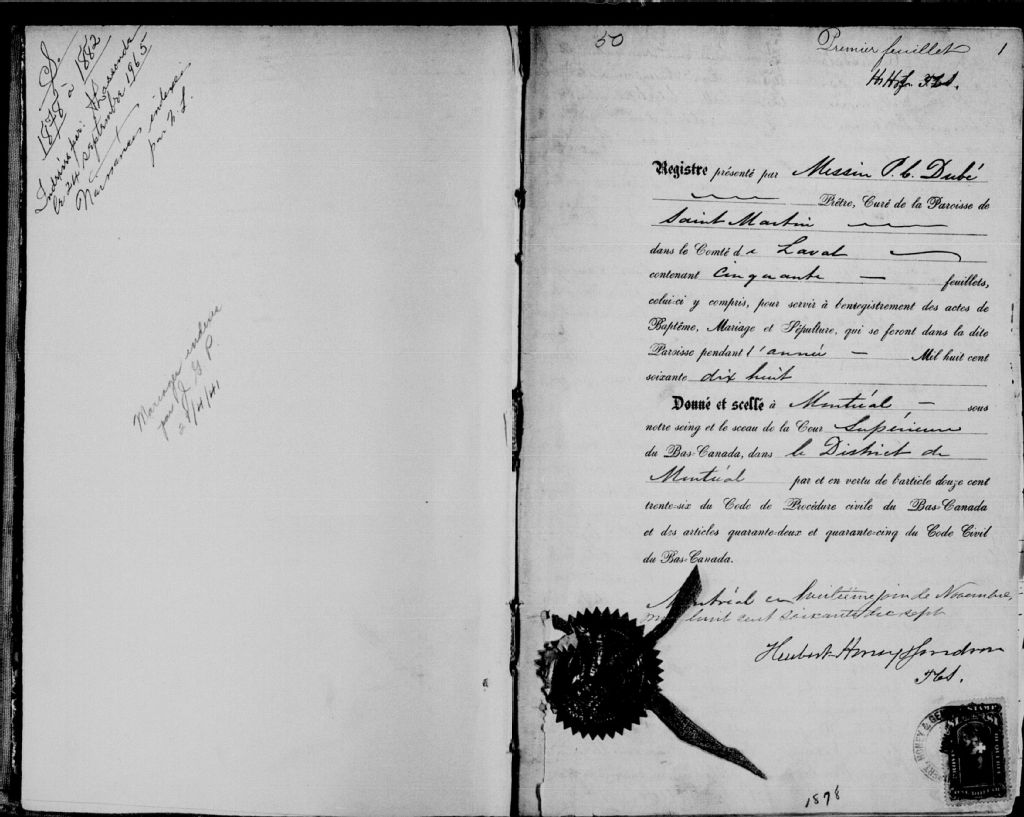 S.
1878 à 1882
le 24 septembre 1965
par
Mariages
par J. G. P.
2/4/41
50
Premier feuillet 1
Registre présenté par Messire P. C. Dubé
Prêtre, Curé de la Paroisse de
Saint Martin
dans le Comté de Laval
contenant cinquante feuillets,
celui-ci y compris, pour servir à l'enregistrement des actes de
Baptême, Mariage et Sépulture, qui se feront dans la dite
Paroisse pendant l'année Mil huit cent
soixante dix huit
Donné et scellé à Montréal sous
notre seing et le sceau de la Cour Supérieure
du Bas-Canada, dans le District de
Montréal par et en vertu de l'article douze cent
trente-six du Code de Procédure civile du Bas-Canada
et des articles quarante-deux et quarante-cinq du Code Civil
du Bas-Canada.
Montréal ce huitième jour de Novembre,
mil huit cent soixante dix sept
1878